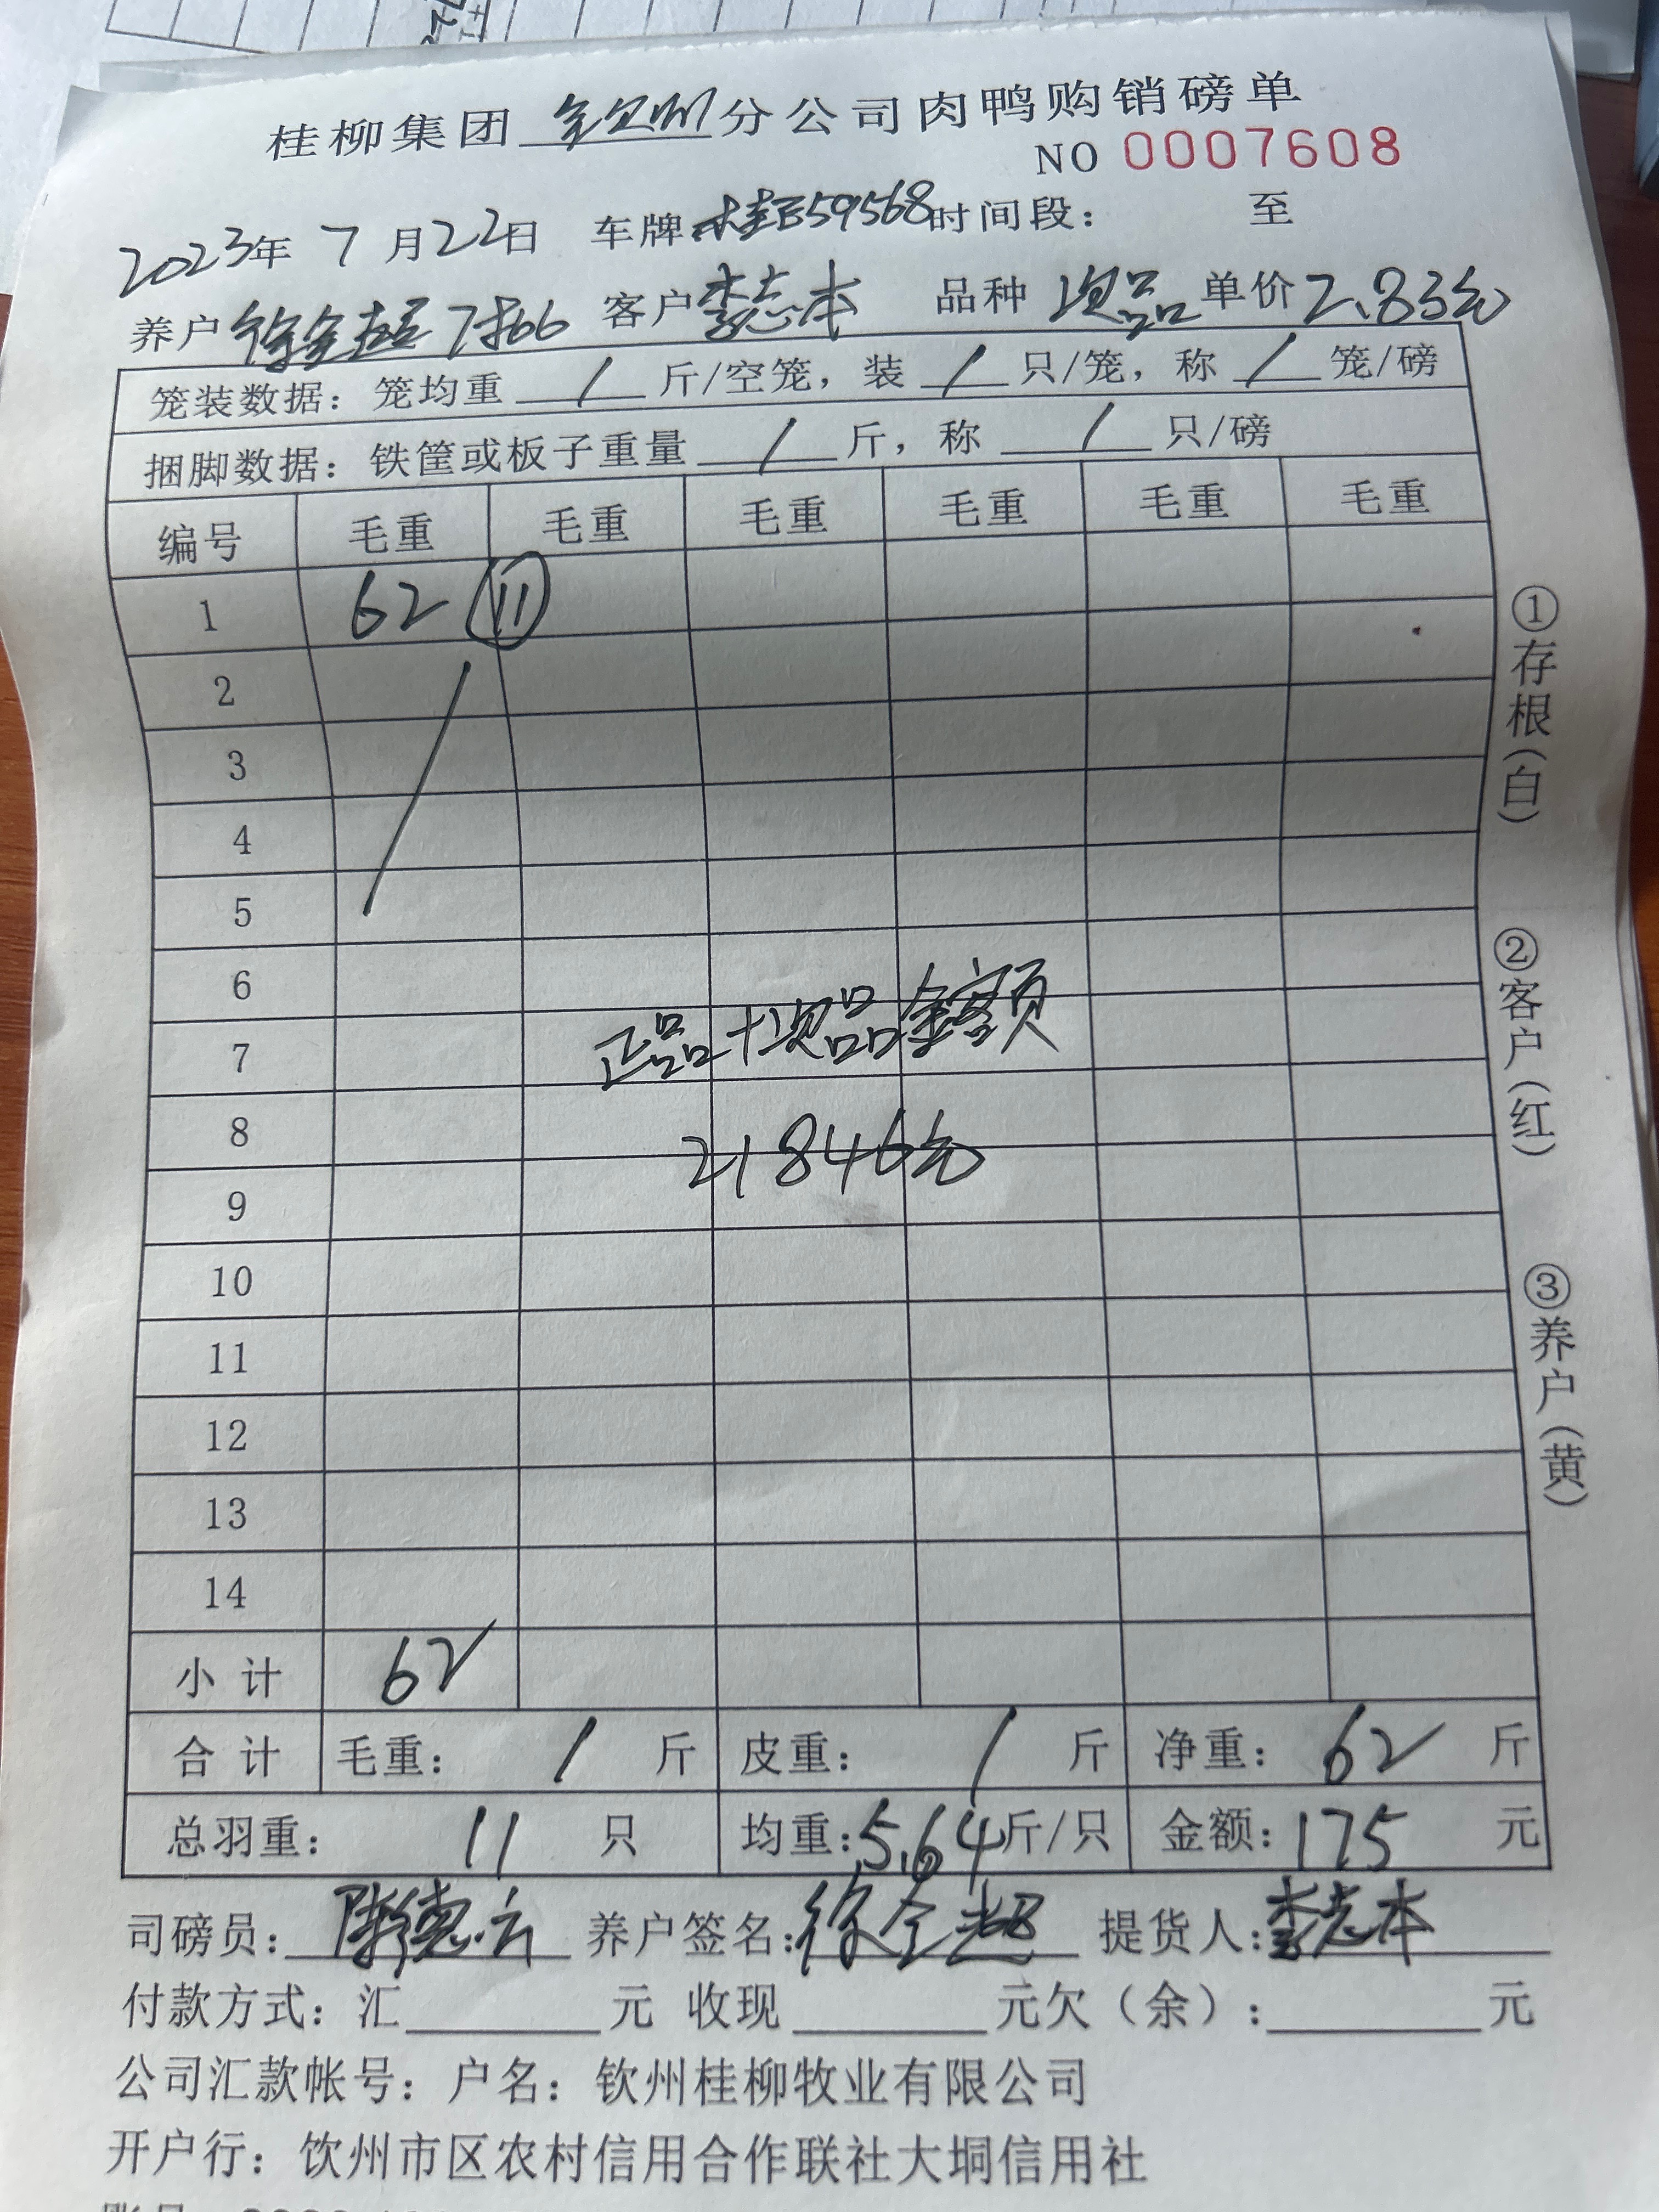 桂柳集团 钦州 分公司肉鸭购销磅单
NO 0007608
2023年 7 月 22 日 车牌 桂E59568 时间段： 至
养户 徐全超 7月66 客户 李志本 品种 次品 单价 2.83元
笼装数据：笼均重 / 斤/空笼，装 / 只/笼，称 / 笼/磅
捆脚数据：铁筐或板子重量 / 斤，称 / 只/磅
编号 毛重 毛重 毛重 毛重 毛重 毛重
1 62 ⑪
2
3
4
5
6
7 正品+次品金额
8 21846元
9
10
11
12
13
14
小计 62
合计 毛重： / 斤 皮重： / 斤 净重： 62 斤
总羽重： 11 只 均重：5.64斤/只 金额：175 元
司磅员：陈德云 养户签名：徐全超 提货人：李志本
付款方式：汇 元 收现 元欠（余）： 元
公司汇款帐号：户名：钦州桂柳牧业有限公司
开户行：饮州市区农村信用合作联社大垌信用社
①存根（白）
②客户（红）
③养户（黄）